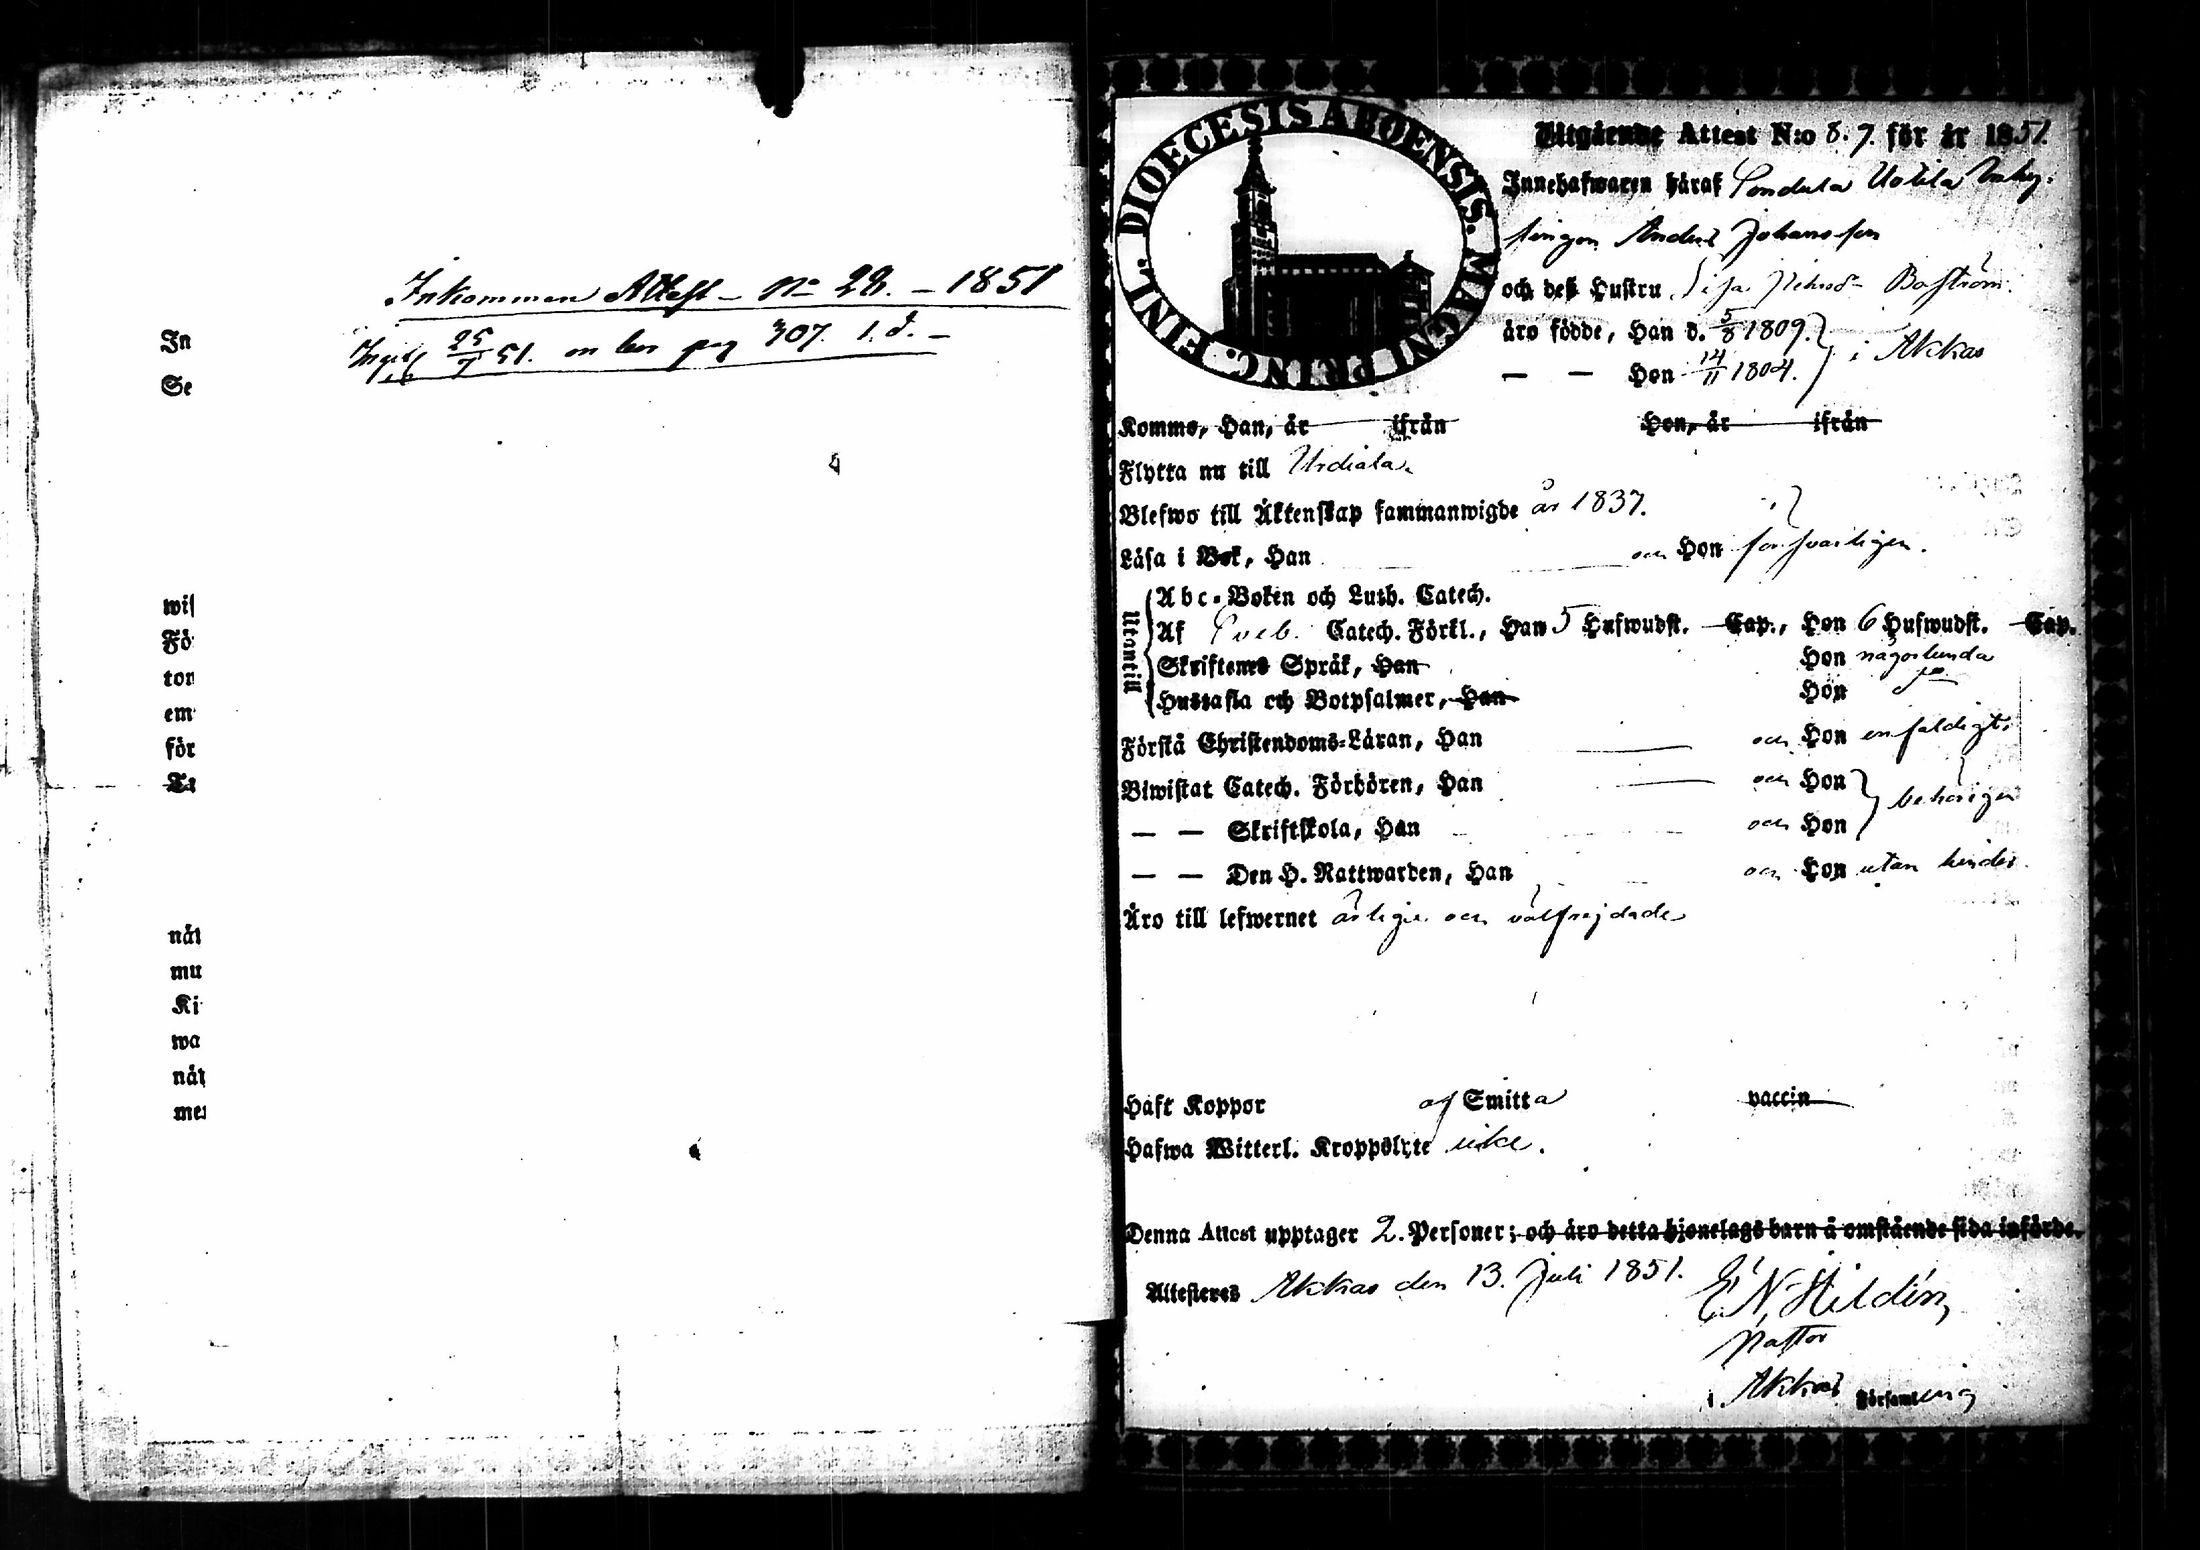 Inkommen Attest – No 28. – 1851
25/7 51. pag 307. 1. d. –
In
Se
wis
Fö
tor
em
för
Ta
nåt
mu
Ki
wa
nåt
mer
DIOECESIS ABOENSIS. MAGNI PRINC. FINL.
Utgående Attest N:o 8.7. för år 1851.
Innehafwaren häraf Uotila Inhy-
singen Anders Johansson
och deß Hustru Lisa Boström.
äro födde, Han d. 5/8 1809. } i Akkas
— — Hon 14/11 1804.
Kommo, Han, år ifrån Hon, år ifrån
Flytta nu till Urdiala.
Blefwo till Äktenskap sammanwigde år 1837.
Läsa i Bok, Han och Hon försvarligen.
Utantill
Abc-Boken och Luth. Catech.
Af Sveb. Catech. Förkl., Han 5 Hufwudst. Cap., Hon 6 Hufwudst. Cap.
Skriftens Språk, Han Hon någorlunda
Hustafla och Botpsalmer, Han Hon
Förstå Christendoms-Läran, Han och Hon enfaldigt.
Biwistat Catech. Förhören, Han och Hon } behörigen
— — Skriftskola, Han och Hon
— — Den H. Nattwarden, Han och Hon utan hinder.
Äro till lefwernet ärlige och välfrejdade
Haft Koppor af Smitta vaccin
Hafwa Witterl. Kroppslyte icke.
Denna Attest upptager 2. Personer; och äro detta hjonelags barn å omstående sida införde.
Attesteres Akkas den 13. Juli 1851.
E. N. Hildén,
Pastor
i Akkas Församling